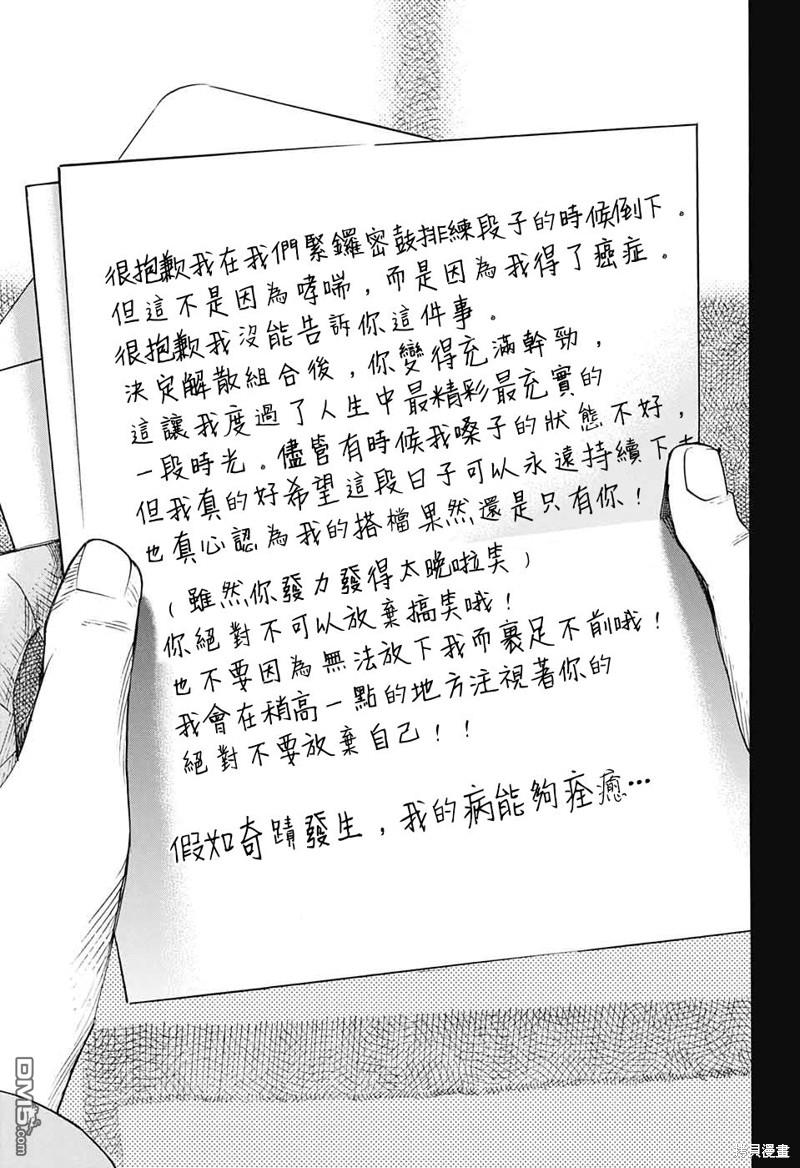 很抱歉我在我們緊鑼密鼓排練段子的時候倒下。
但這不是因為哮喘，而是因為我得了癌症。
很抱歉我沒能告訴你這件事。
決定解散組合後，你變得充滿幹勁，
這讓我度過了人生中最精彩最充實的
一段時光。儘管有時候我嗓子的狀態不好，
但我真的好希望這段日子可以永遠持續下去，
也真心認為我的搭檔果然還是只有你！
（雖然你發力發得太晚啦笑）
你絕對不可以放棄搞笑哦！
也不要因為無法放下我而裹足不前哦！
我會在稍高一點的地方注視著你的
絕對不要放棄自己！！
假如奇蹟發生，我的病能夠痊癒…
DM5.com
拷貝漫畫